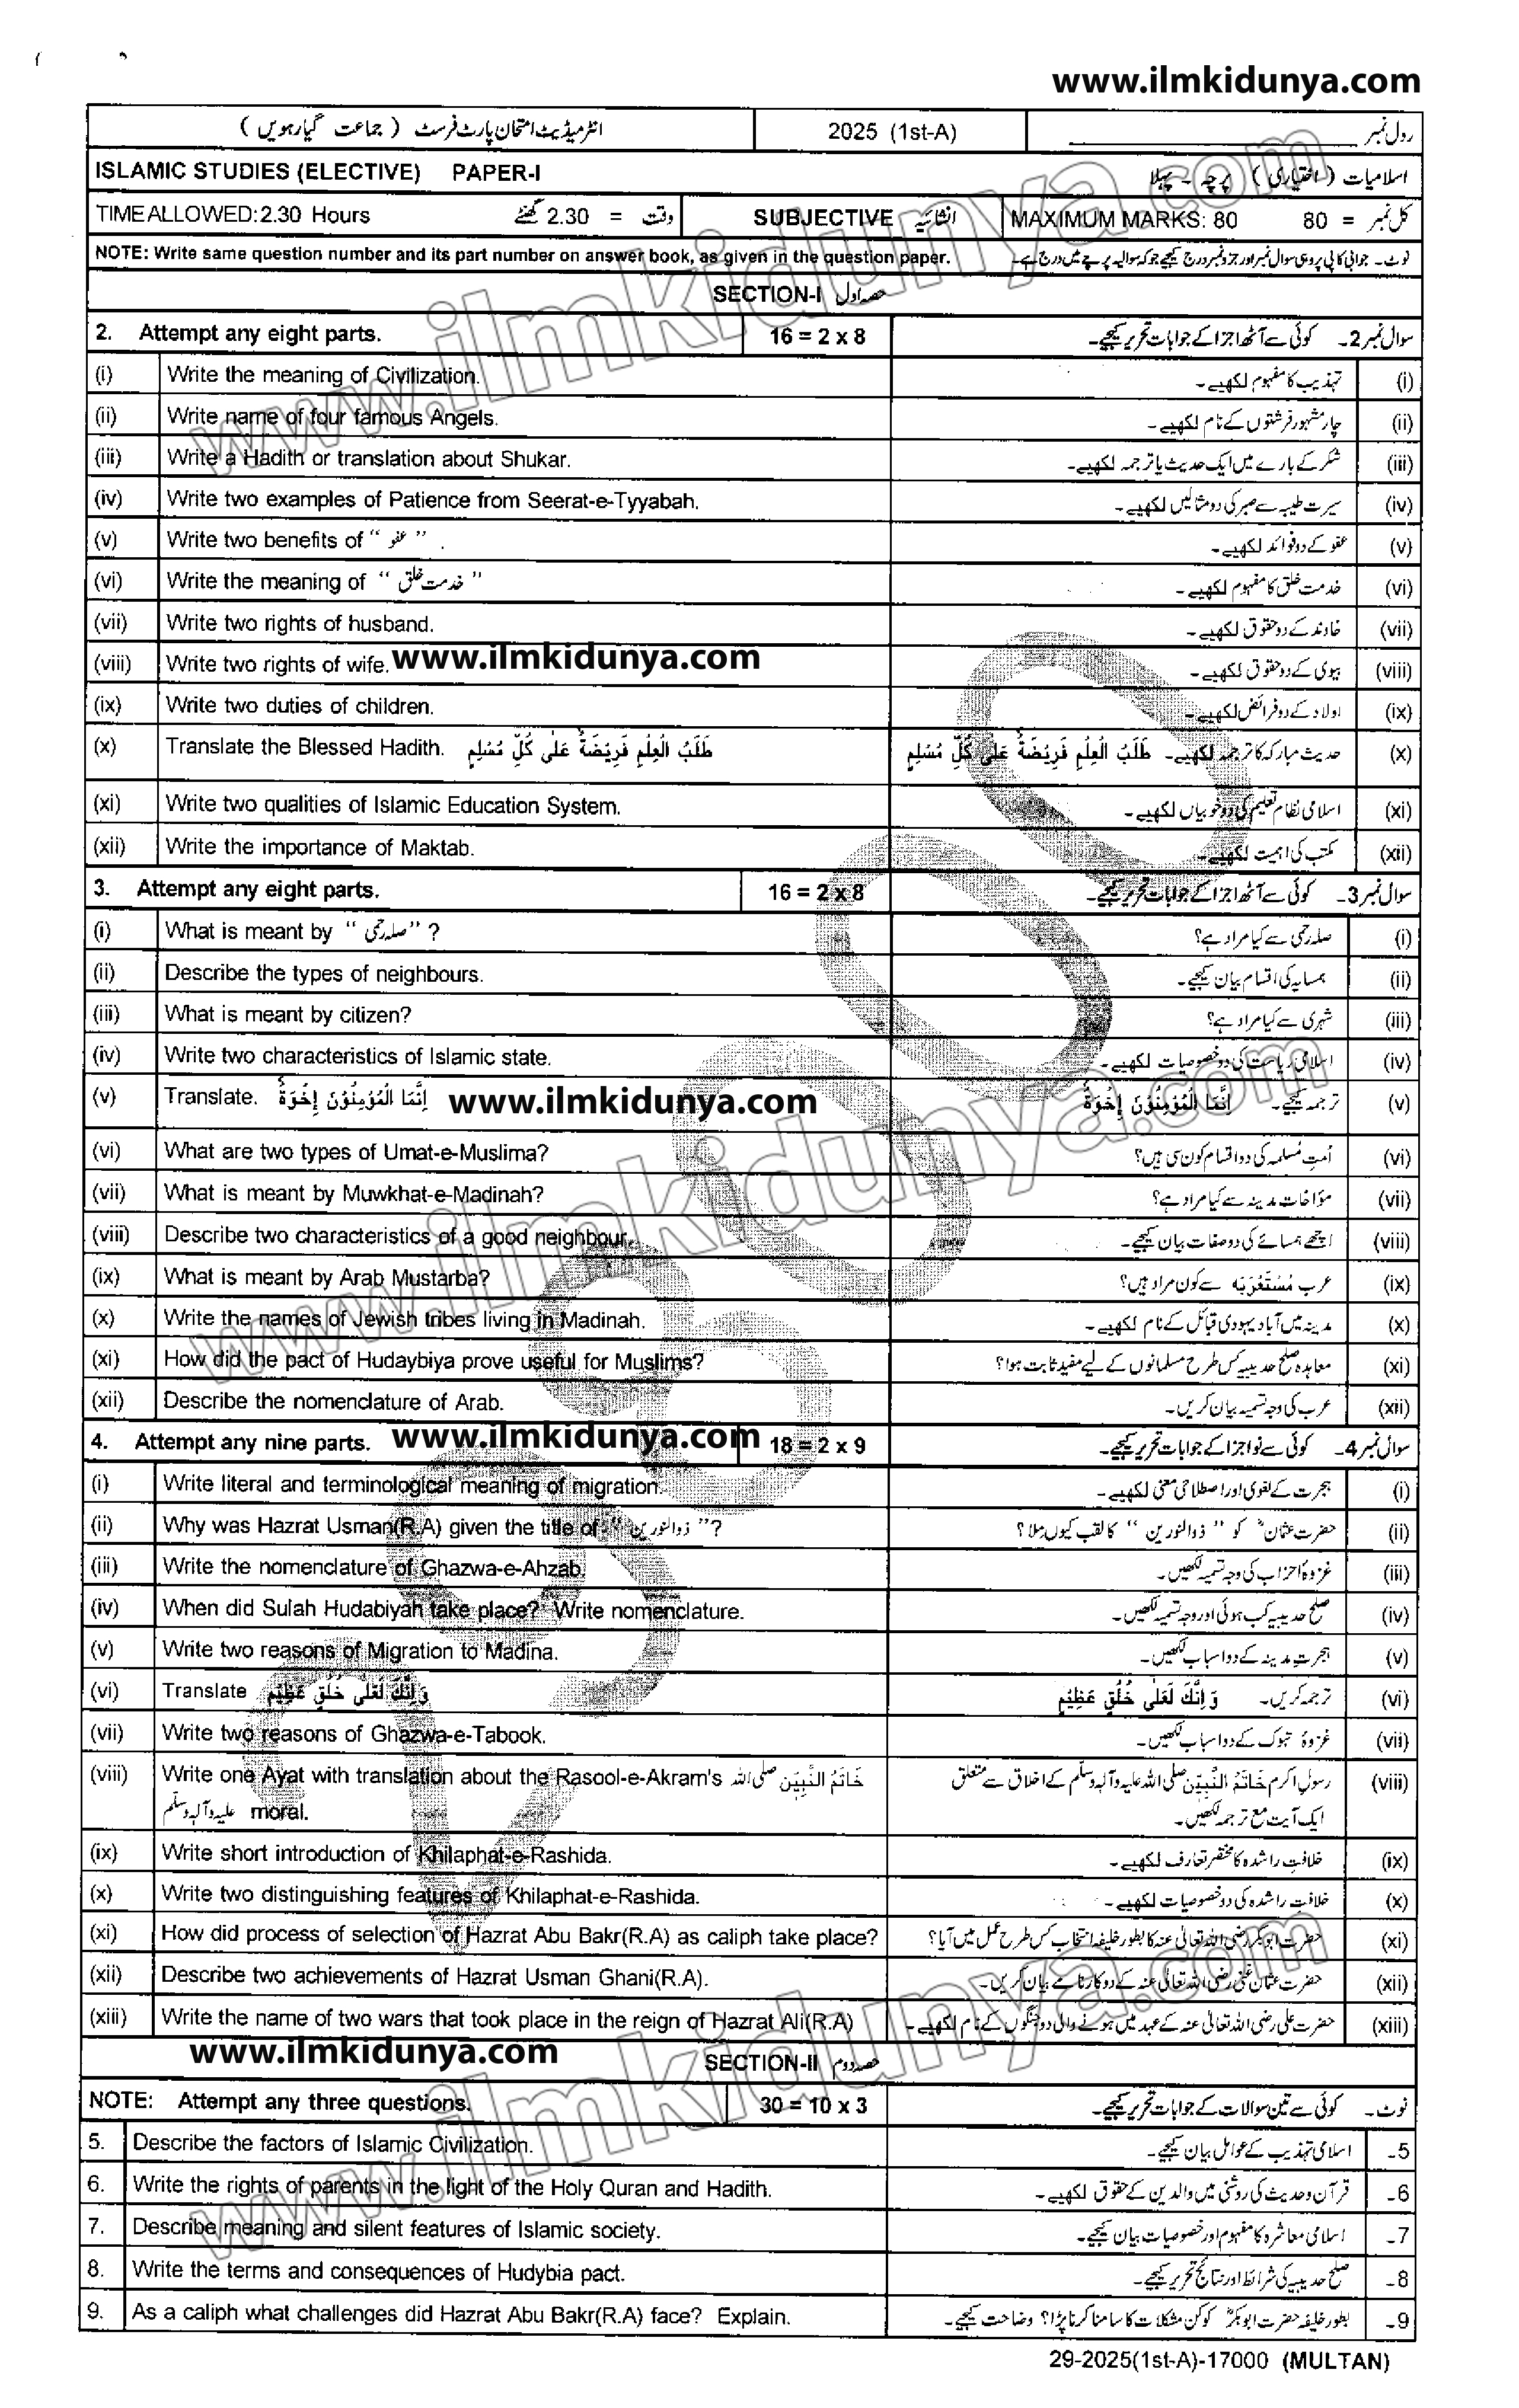 www.ilmkidunya.com
انٹرمیڈیٹ امتحان پارٹ فرسٹ ( جماعت گیارہویں ) 2025 (1st-A) رول نمبر
ISLAMIC STUDIES (ELECTIVE) PAPER-I اسلامیات (اختیاری) پرچہ ۔ پہلا
TIME ALLOWED: 2.30 Hours وقت = 2.30 گھنٹے SUBJECTIVE انشائیہ MAXIMUM MARKS: 80 کل نمبر = 80
NOTE: Write same question number and its part number on answer book, as given in the question paper. نوٹ۔ جوابی کاپی پر وہی سوال نمبر اور جزو نمبر درج کیجیے جو کہ سوالیہ پرچے میں درج ہے۔
SECTION-I حصہ اول
2. Attempt any eight parts. 16 = 2 x 8 سوال نمبر 2۔ کوئی سے آٹھ اجزا کے جوابات تحریر کیجیے۔
(i) Write the meaning of Civilization. تہذیب کا مفہوم لکھیے۔ (i)
(ii) Write name of four famous Angels. چار مشہور فرشتوں کے نام لکھیے۔ (ii)
(iii) Write a Hadith or translation about Shukar. شکر کے بارے میں ایک حدیث یا ترجمہ لکھیے۔ (iii)
(iv) Write two examples of Patience from Seerat-e-Tyyabah. سیرت طیبہ سے صبر کی دو مثالیں لکھیے۔ (iv)
(v) Write two benefits of “ عفو ” . عفو کے دو فوائد لکھیے۔ (v)
(vi) Write the meaning of “ خدمت خلق ” خدمت خلق کا مفہوم لکھیے۔ (vi)
(vii) Write two rights of husband. خاوند کے دو حقوق لکھیے۔ (vii)
(viii) Write two rights of wife. www.ilmkidunya.com بیوی کے دو حقوق لکھیے۔ (viii)
(ix) Write two duties of children. اولاد کے دو فرائض لکھیے۔ (ix)
(x) Translate the Blessed Hadith. طَلَبُ الْعِلْمِ فَرِيْضَةٌ عَلٰى كُلِّ مُسْلِمٍ حدیث مبارکہ کا ترجمہ لکھیے۔ طَلَبُ الْعِلْمِ فَرِيْضَةٌ عَلٰى كُلِّ مُسْلِمٍ (x)
(xi) Write two qualities of Islamic Education System. اسلامی نظام تعلیم کی دو خوبیاں لکھیے۔ (xi)
(xii) Write the importance of Maktab. مکتب کی اہمیت لکھیے۔ (xii)
3. Attempt any eight parts. 16 = 2 x 8 سوال نمبر 3۔ کوئی سے آٹھ اجزا کے جوابات تحریر کیجیے۔
(i) What is meant by “ صلہ رحمی ” ? صلہ رحمی سے کیا مراد ہے؟ (i)
(ii) Describe the types of neighbours. ہمسایہ کی اقسام بیان کیجیے۔ (ii)
(iii) What is meant by citizen? شہری سے کیا مراد ہے؟ (iii)
(iv) Write two characteristics of Islamic state. اسلامی ریاست کی دو خصوصیات لکھیے۔ (iv)
(v) Translate. اِنَّمَا الْمُؤْمِنُوْنَ اِخْوَةٌ www.ilmkidunya.com ترجمہ کیجیے۔ اِنَّمَا الْمُؤْمِنُوْنَ اِخْوَةٌ (v)
(vi) What are two types of Umat-e-Muslima? اُمتِ مُسلمہ کی دو اقسام کون سی ہیں؟ (vi)
(vii) What is meant by Muwkhat-e-Madinah? مؤاخات مدینہ سے کیا مراد ہے؟ (vii)
(viii) Describe two characteristics of a good neighbour. اچھے ہمسائے کی دو صفات بیان کیجیے۔ (viii)
(ix) What is meant by Arab Mustarba? عرب مُسْتَعْرَبَہ سے کون مراد ہیں؟ (ix)
(x) Write the names of Jewish tribes living in Madinah. مدینہ میں آباد یہودی قبائل کے نام لکھیے۔ (x)
(xi) How did the pact of Hudaybiya prove useful for Muslims? معاہدہ صلح حدیبیہ کس طرح مسلمانوں کے لیے مفید ثابت ہوا؟ (xi)
(xii) Describe the nomenclature of Arab. عرب کی وجہ تسمیہ بیان کریں۔ (xii)
4. Attempt any nine parts. www.ilmkidunya.com 18 = 2 x 9 سوال نمبر 4۔ کوئی سے نو اجزا کے جوابات تحریر کیجیے۔
(i) Write literal and terminological meaning of migration. ہجرت کے لغوی اور اصطلاحی معنی لکھیے۔ (i)
(ii) Why was Hazrat Usman(R.A) given the title of “ ذوالنورین ”? حضرت عثمانؓ کو “ ذوالنورین ” کا لقب کیوں ملا؟ (ii)
(iii) Write the nomenclature of Ghazwa-e-Ahzab. غزوۂ احزاب کی وجہ تسمیہ لکھیں۔ (iii)
(iv) When did Sulah Hudabiyah take place? Write nomenclature. صلح حدیبیہ کب ہوئی اور وجہ تسمیہ لکھیں۔ (iv)
(v) Write two reasons of Migration to Madina. ہجرتِ مدینہ کے دو اسباب لکھیں۔ (v)
(vi) Translate وَاِنَّكَ لَعَلٰى خُلُقٍ عَظِيْمٍ ترجمہ کریں۔ وَاِنَّكَ لَعَلٰى خُلُقٍ عَظِيْمٍ (vi)
(vii) Write two reasons of Ghazwa-e-Tabook. غزوۂ تبوک کے دو اسباب لکھیں۔ (vii)
(viii) Write one Ayat with translation about the Rasool-e-Akram's خَاتَمُ النَّبِيّٖنَ صلی اللہ رسول اکرم خَاتَمُ النَّبِيّٖنَ صلی اللہ علیہ وآلہ وسلم کے اخلاق سے متعلق (viii)
علیہ وآلہ وسلم moral. ایک آیت مع ترجمہ لکھیں۔
(ix) Write short introduction of Khilaphat-e-Rashida. خلافتِ راشدہ کا مختصر تعارف لکھیے۔ (ix)
(x) Write two distinguishing features of Khilaphat-e-Rashida. خلافتِ راشدہ کی دو خصوصیات لکھیے۔ (x)
(xi) How did process of selection of Hazrat Abu Bakr(R.A) as caliph take place? حضرت ابوبکر رضی اللہ تعالیٰ عنہ کا بطور خلیفہ انتخاب کس طرح عمل میں آیا؟ (xi)
(xii) Describe two achievements of Hazrat Usman Ghani(R.A). حضرت عثمان غنی رضی اللہ تعالیٰ عنہ کے دو کارنامے بیان کریں۔ (xii)
(xiii) Write the name of two wars that took place in the reign of Hazrat Ali(R.A) حضرت علی رضی اللہ تعالیٰ عنہ کے عہد میں ہونے والی دو جنگوں کے نام لکھیے۔ (xiii)
www.ilmkidunya.com SECTION-II حصہ دوم
NOTE: Attempt any three questions. 30 = 10 x 3 نوٹ۔ کوئی سے تین سوالات کے جوابات تحریر کیجیے۔
5. Describe the factors of Islamic Civilization. اسلامی تہذیب کے عوامل بیان کیجیے۔ 5۔
6. Write the rights of parents in the light of the Holy Quran and Hadith. قرآن و حدیث کی روشنی میں والدین کے حقوق لکھیے۔ 6۔
7. Describe meaning and silent features of Islamic society. اسلامی معاشرہ کا مفہوم اور خصوصیات بیان کیجیے۔ 7۔
8. Write the terms and consequences of Hudybia pact. صلح حدیبیہ کی شرائط اور نتائج تحریر کیجیے۔ 8۔
9. As a caliph what challenges did Hazrat Abu Bakr(R.A) face? Explain. بطور خلیفہ حضرت ابوبکرؓ کو کن مشکلات کا سامنا کرنا پڑا؟ وضاحت کیجیے۔ 9۔
29-2025(1st-A)-17000 (MULTAN)